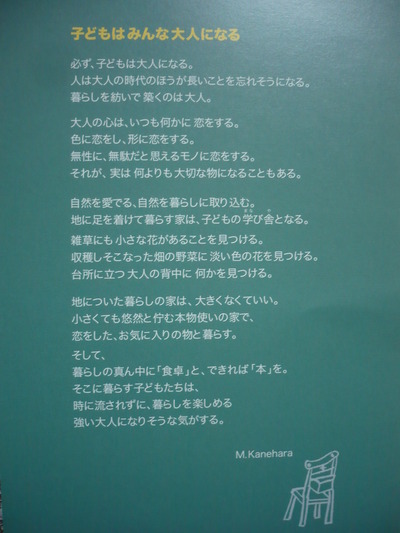 子どもは みんな 大人になる
必ず、子どもは大人になる。
人は大人の時代のほうが長いことを忘れそうになる。
暮らしを紡いで 築くのは 大人。
大人の心は、いつも何かに 恋をする。
色に恋をし、形に恋をする。
無性に、無駄だと思えるモノに恋をする。
それが、実は 何よりも 大切な物になることもある。
自然を愛でる、自然を暮らしに取り込む。
地に足を着けて暮らす家は、子どもの学び舎となる。
雑草にも 小さな花があることを見つける。
収穫しそこなった畑の野菜に 淡い色の花を見つける。
台所に立つ 大人の背中に 何かを見つける。
地についた暮らしの家は、大きくなくていい。
小さくても悠然と佇む本物使いの家で、
恋をした、お気に入りの物と暮らす。
そして、
暮らしの真ん中に「食卓」と、できれば「本」を。
そこに暮らす子どもたちは、
時に流されずに、暮らしを楽しめる
強い大人になりそうな気がする。
M.Kanehara